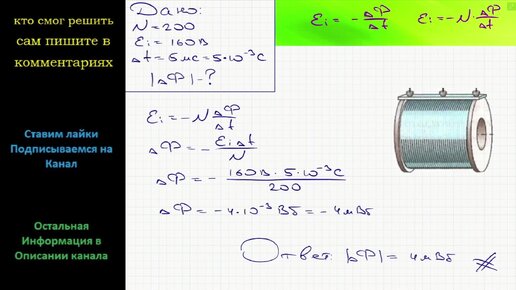 кто смог решить
сам пишите в
комментариях
Ставим лайки
Подписываемся на
Канал
Остальная
Информация в
Описании канала
Дано:
N=200
Ei = 160В
Δt = 5мс = 5·10⁻³с
|ΔФ| - ?
Ei = - ΔФ/Δt   Ei = -N·ΔФ/Δt
Ei = -N ΔФ/Δt
ΔФ = - EiΔt/N
ΔФ = - 160В · 5·10⁻³с/200
ΔФ = -4·10⁻³ Вб = -4мВб
Ответ: |ΔФ| = 4мВб